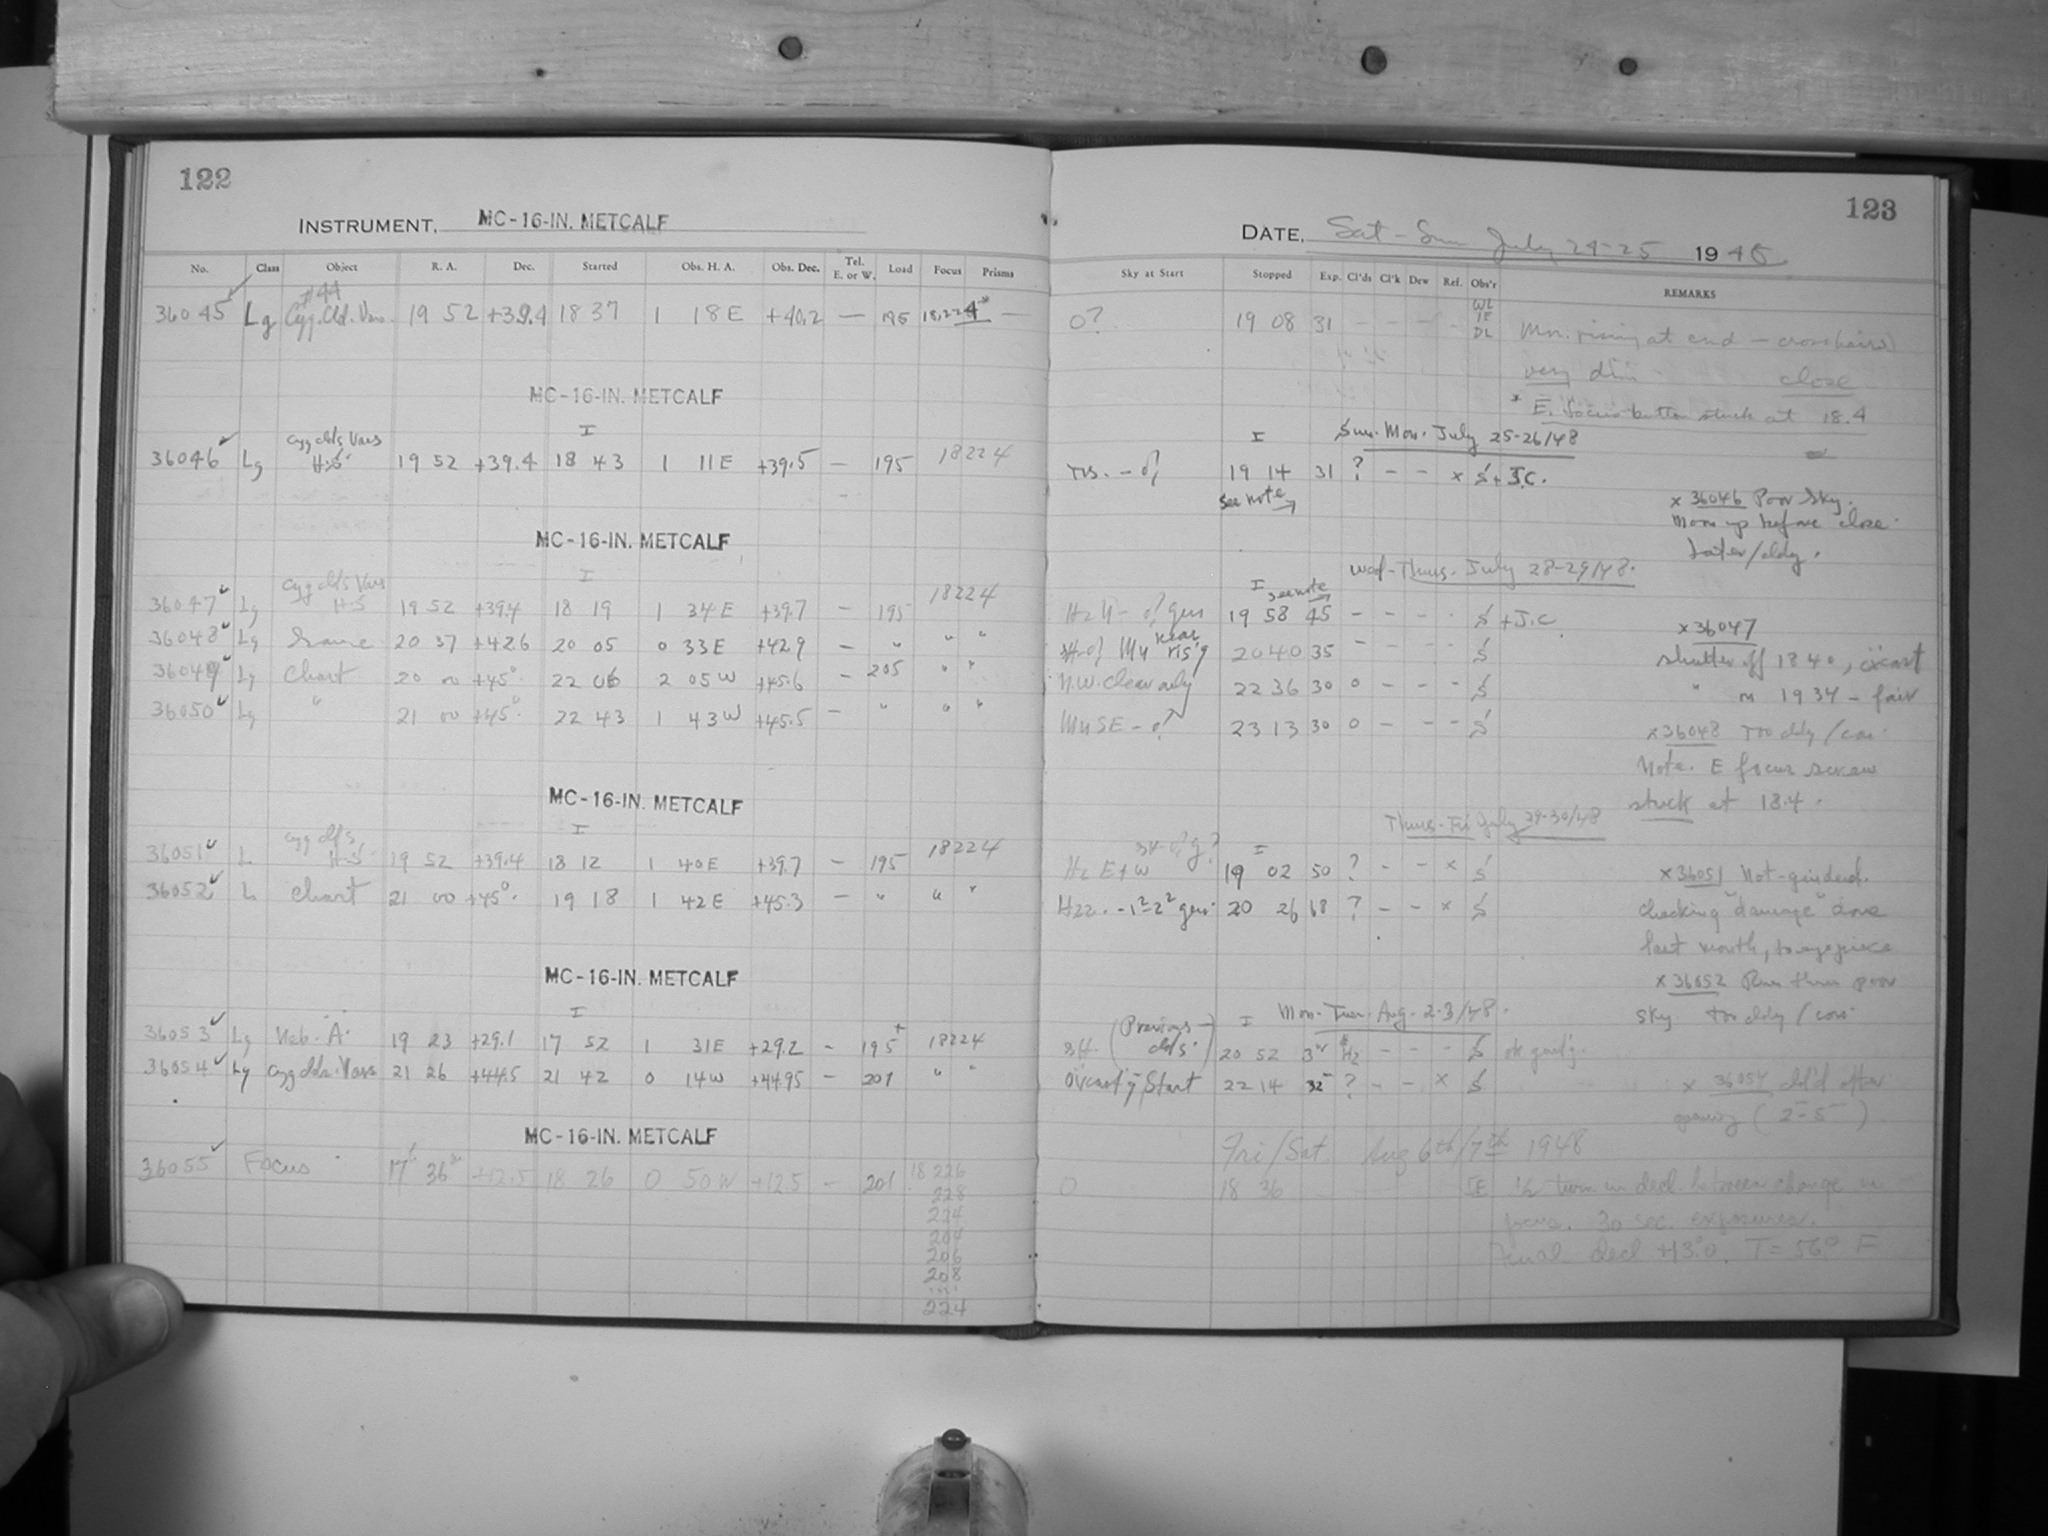 122
INSTRUMENT, MC-16-IN. METCALF
No. Class Object R. A. Dec. Started Obs. H. A. Obs. Dec. Tel. E. or W. Load Focus Prisms
#44
36045 Lg Cyg. Cld. Vars. 19 52 +39.4 18 37 1 18 E +40.2 — 195 18,224* —
MC-16-IN. METCALF
I
Cyg clds Vars
36046 ✓ Lg H.S. 19 52 +39.4 18 43 1 11 E +39.5 — 195 18224
MC-16-IN. METCALF
I
Cyg clds Vars
36047 ✓ Lg H.S. 19 52 +39.4 18 19 1 34 E +39.7 — 195 18224
36048 ✓ Lg Same 20 37 +42.6 20 05 0 33 E +42.9 — " " "
36049 ✓ Lg Chart 20 00 +45° 22 06 2 05 W +45.6 — 205 " "
36050 ✓ Lg " 21 00 +45° 22 43 1 43 W +45.5 — " " "
MC-16-IN. METCALF
I
Cyg clds
36051 ✓ L H.S. 19 52 +39.4 18 12 1 40 E +39.7 — 195 18224
36052 ✓ L Chart 21 00 +45° 19 18 1 42 E +45.3 — " " "
MC-16-IN. METCALF
I
36053 ✓ Lg Neb. A. 19 23 +29.1 17 52 1 31 E +29.2 — 195+ 18224
36054 ✓ Lg Cyg clds. Vars 21 26 +44.5 21 42 0 14 W +44.95 — 201 " "
MC-16-IN. METCALF
36055 ✓ Focus 17h 36m +12.5 18 26 0 50 W +12.5 — 201 18 226
228
224
204
206
208
....
224
123
DATE, Sat - Sun July 24-25 1948
Sky at Start Stopped Exp. Cl'ds Cl'k Dew Ref. Obs'r REMARKS
WL
IE
0? 19 08 31 — — — — DL Mn. rising at end — crosshairs
very dim close
* E. focus button stuck at 18.4
I Sun. Mon. July 25-26/48
19 14 31 ? — — x S + J.C.
see note x 36046 Poor sky.
Moon up before close.
Later/cldy.
Wed-Thurs. July 28-29/48.
I see note
19 58 45 — — — - S + J.C.
x 36047
near
ris'g 20 40 35 — — — - S shutter off 18 40,
N.W. clear only 22 36 30 0 — — - S " on 19 34 — fair
Mn SE — 23 13 30 0 — — - S
x 36048 Too cldy /
Note. E focus screw
stuck at 18.4.
Thurs-Fri July 29-30/48
I
Hz E + W 19 02 50 ? — — x S x 36051 Not guided.
20 26 68 ? — — x S checking "damage" done
last month, to eyepiece
x 36052 Run thru poor
sky. too cldy /
Mon-Tues. Aug. 2-3/48.
I
(Previous clds.) 20 52 Hz — — - S ok
Start 22 14 32 ? — — x S x 36054 cld'd after
(2-5)
Fri/Sat Aug 6th/7th 1948
0 18 36 IE 1/2 turn in decl. between change in
focus. 30 sec. exposures.
Final decl +13.0. T = 56° F